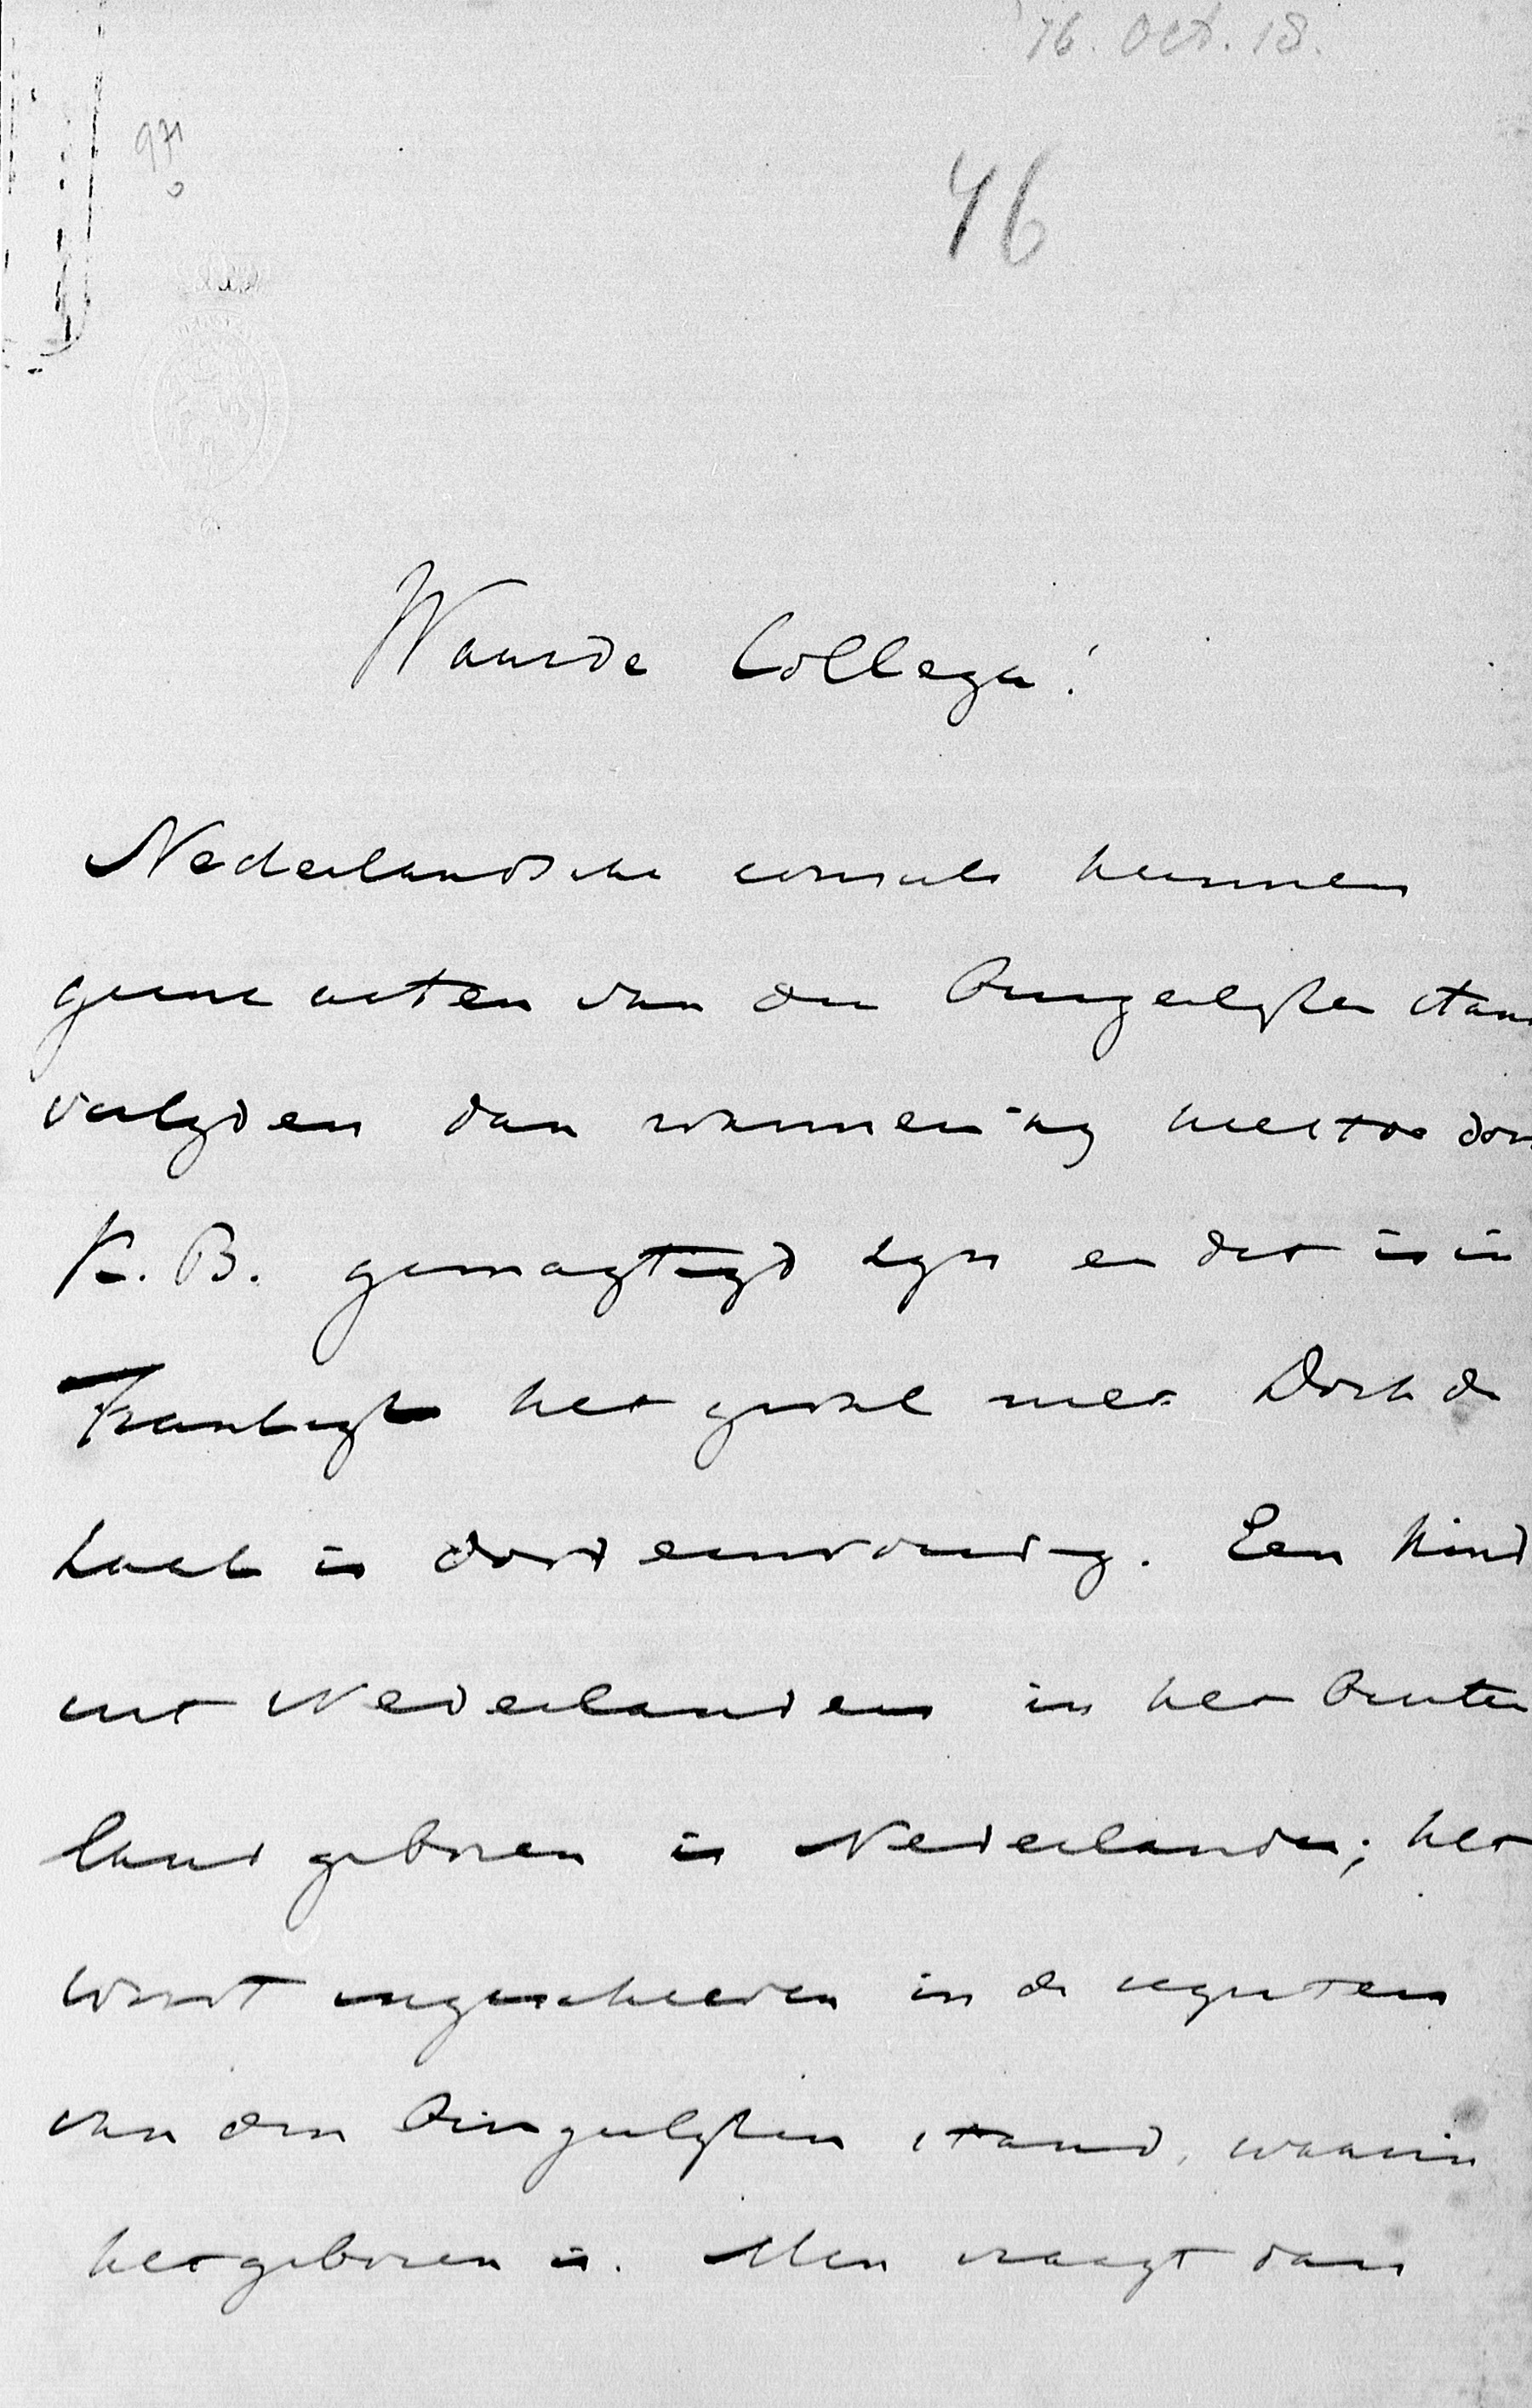 '76. Oct. 18.
971
46
Waarde Collega!
Nederlandsche consuls kunnen
geene acten van den burgerlijken stand
verlyden dan wanneer zy hiertoe door
K. B. gemagtigd zyn en dat is in
Frankryk het geval niet. Doch de
zaak is dood eenvoudig. Een kind
uit Nederlanders in het buiten
land geboren is Nederlander; het
wordt ingeschreven in de registers
van den burgerlyken stand, waarin
het geboren is. Men vraagt dan